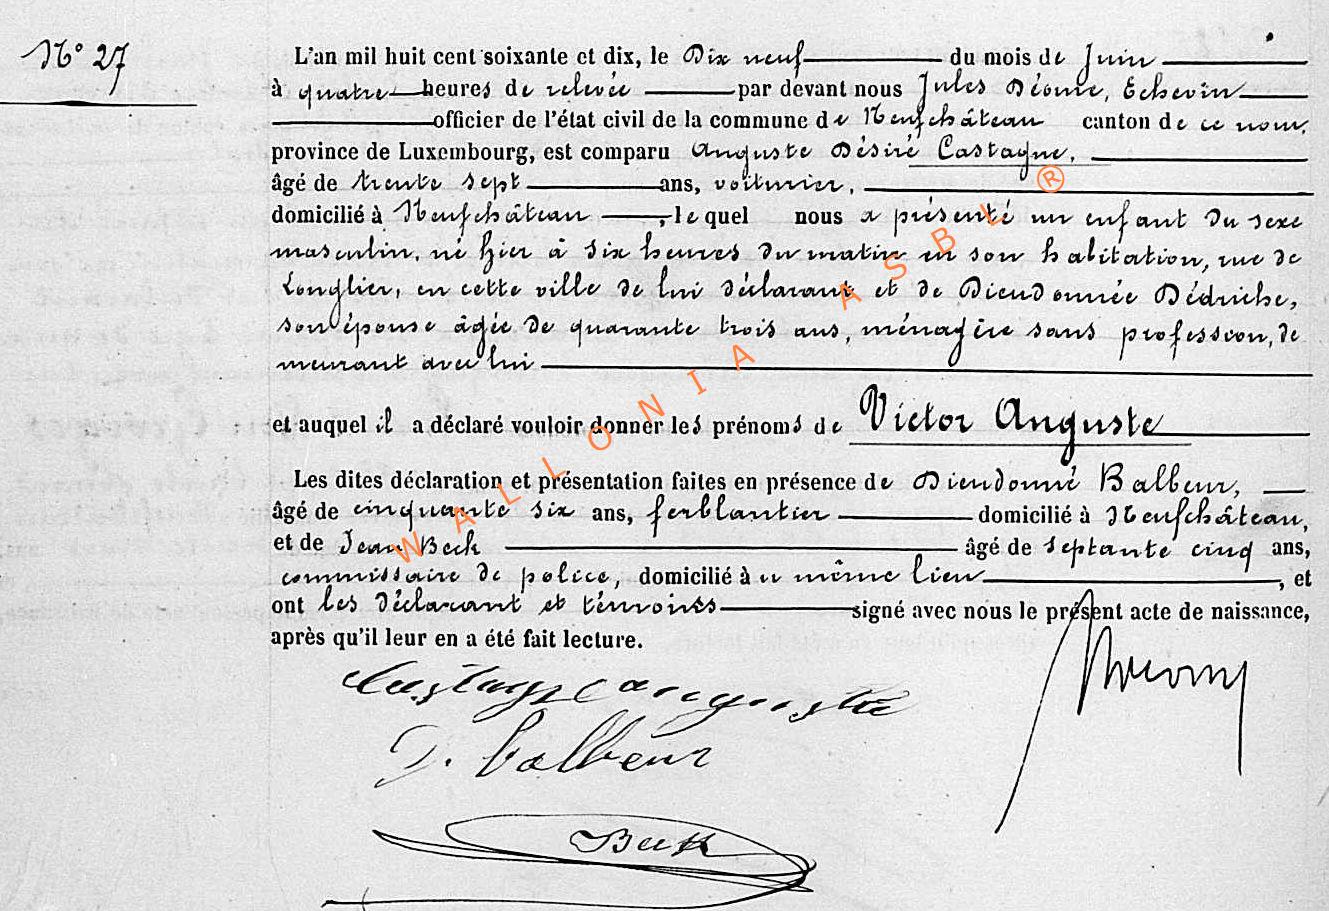 N° 27
L'an mil huit cent soixante et dix, le Dix neuf du mois de Juin
à quatre heures de relevée par devant nous Jules Déome, Echevin
officier de l'état civil de la commune de Neufchâteau canton de ce nom,
province de Luxembourg, est comparu Auguste Désiré Castagne,
âgé de trente sept ans, voiturier,
domicilié à Neufchâteau, lequel nous a présenté un enfant du sexe
masculin, né hier à six heures du matin en son habitation, rue de
Longlier, en cette ville de lui déclarant et de Dieudonnée Dédriche,
son épouse âgée de quarante trois ans, ménagère sans profession, de
meurant avec lui
et auquel il a déclaré vouloir donner les prénoms de Victor Auguste
Les dites déclaration et présentation faites en présence de Dieudonné Balbeur,
âgé de cinquante six ans, ferblantier domicilié à Neufchâteau,
et de Jean Beck âgé de septante cinq ans,
commissaire de police, domicilié à u même lieu, et
ont les déclarant et témoins signé avec nous le présent acte de naissance,
après qu'il leur en a été fait lecture.
Castagne auguste
D. balbeur
Beck
WALLONIA ASBL ®